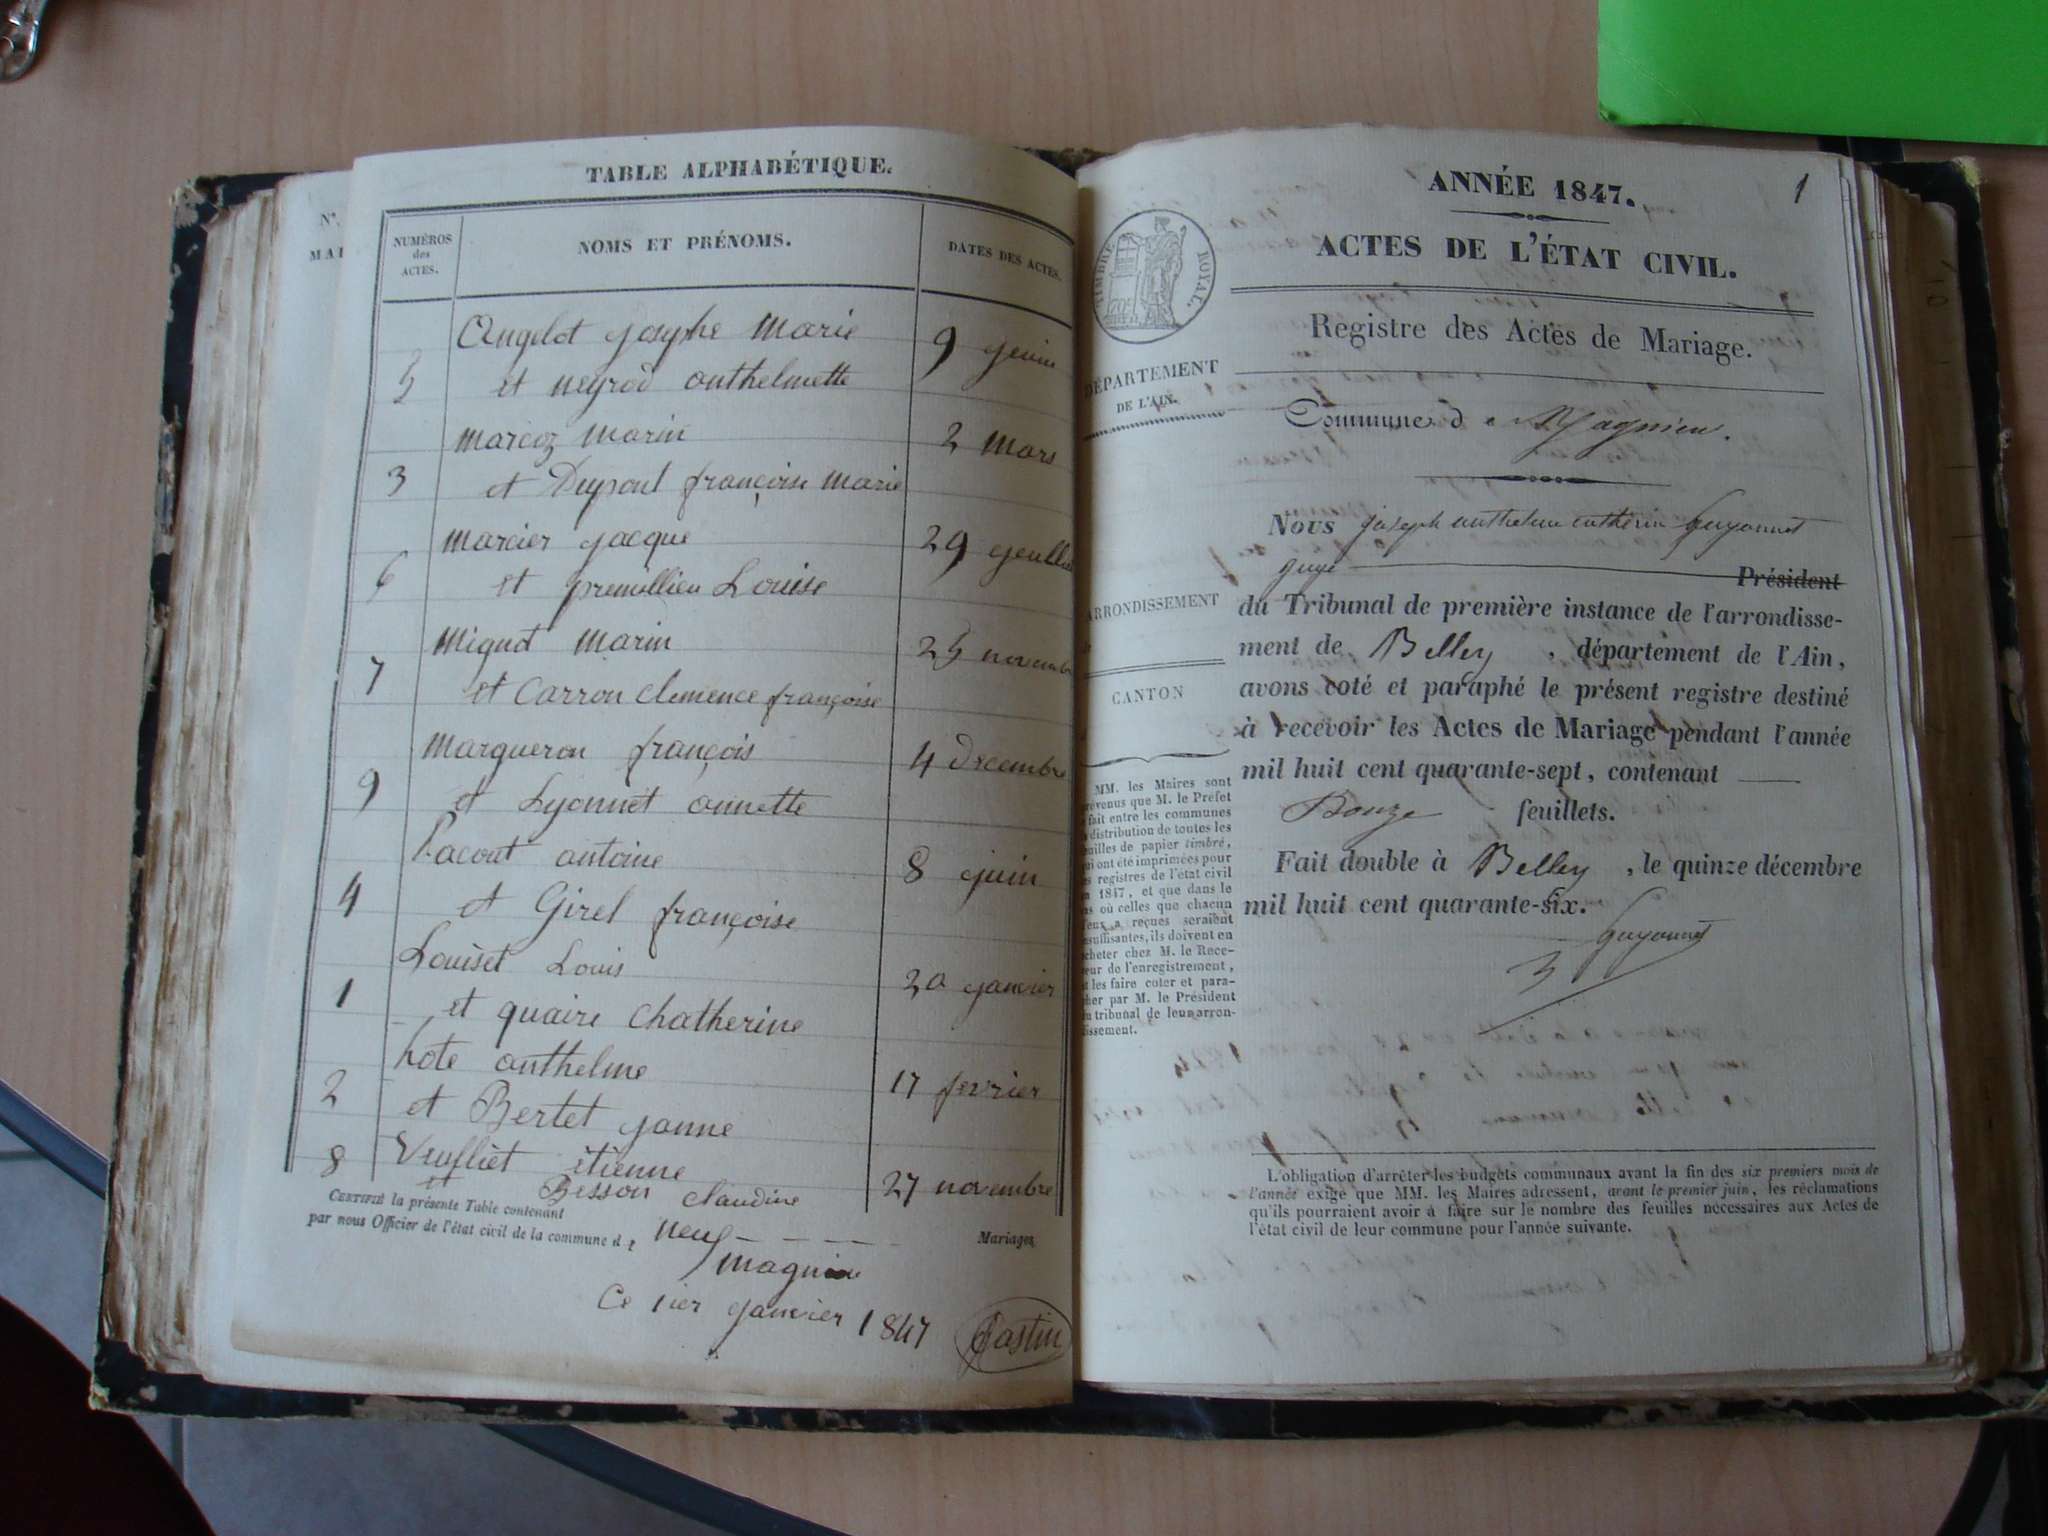 N°.
MAI
TABLE ALPHABÉTIQUE.
NUMÉROS
des
ACTES.
NOMS ET PRÉNOMS.
DATES DES ACTES.
Angelot josephe Marie
9
5 et neyrod anthelmette
Marcoz Marin
2 Mars
3 et Dupont françoise Marie
Marcier jacque
29
6 et premillieu Louise
Mignot Marin
25 novembre
7 et Carron clemence françoise
Margueron françois
4 decembre
9 et Lyonnet annette
Pacout antoine
8 juin
4 et Girel françoise
Louiset Louis
20 janvier
1 et quaire Chatherine
hote anthelme
17 fevrier
2 et Bertet janne
8 Vuilliet étienne
et Besson claudine
27 novembre
CERTIFIÉ la présente Table contenant neuf Mariages
par nous Officier de l'état civil de la commune de
magnieu
Ce 1ier janvier 1847 Gastin
1
ANNÉE 1847.
ACTES DE L'ÉTAT CIVIL.
Registre des Actes de Mariage.
Commune de Magnieu.
TIMBRE ROYAL.
DÉPARTEMENT
DE L'AIN.
ARRONDISSEMENT
CANTON
MM. les Maires sont
prévenus que M. le Préfet
a fait entre les communes
la distribution de toutes les
feuilles de papier timbré,
qui ont été imprimées pour
les registres de l'état civil
en 1847, et que dans le
cas où celles que chacun
d'eux a reçues seraient
insuffisantes, ils doivent en
acheter chez M. le Rece-
veur de l'enregistrement,
et les faire coter et para-
pher par M. le Président
du tribunal de leur arron-
dissement.
Nous joseph anthelme cathérin Guyonnet
juge Président
du Tribunal de première instance de l'arrondisse-
ment de Belley, département de l'Ain,
avons coté et paraphé le présent registre destiné
à recevoir les Actes de Mariage pendant l'année
mil huit cent quarante-sept, contenant
Douze feuillets.
Fait double à Belley, le quinze décembre
mil huit cent quarante-six.
Guyonnet
L'obligation d'arrêter les budgets communaux avant la fin des six premiers mois de
l'année exige que MM. les Maires adressent, avant le premier juin, les réclamations
qu'ils pourraient avoir à faire sur le nombre des feuilles nécessaires aux Actes de
l'état civil de leur commune pour l'année suivante.